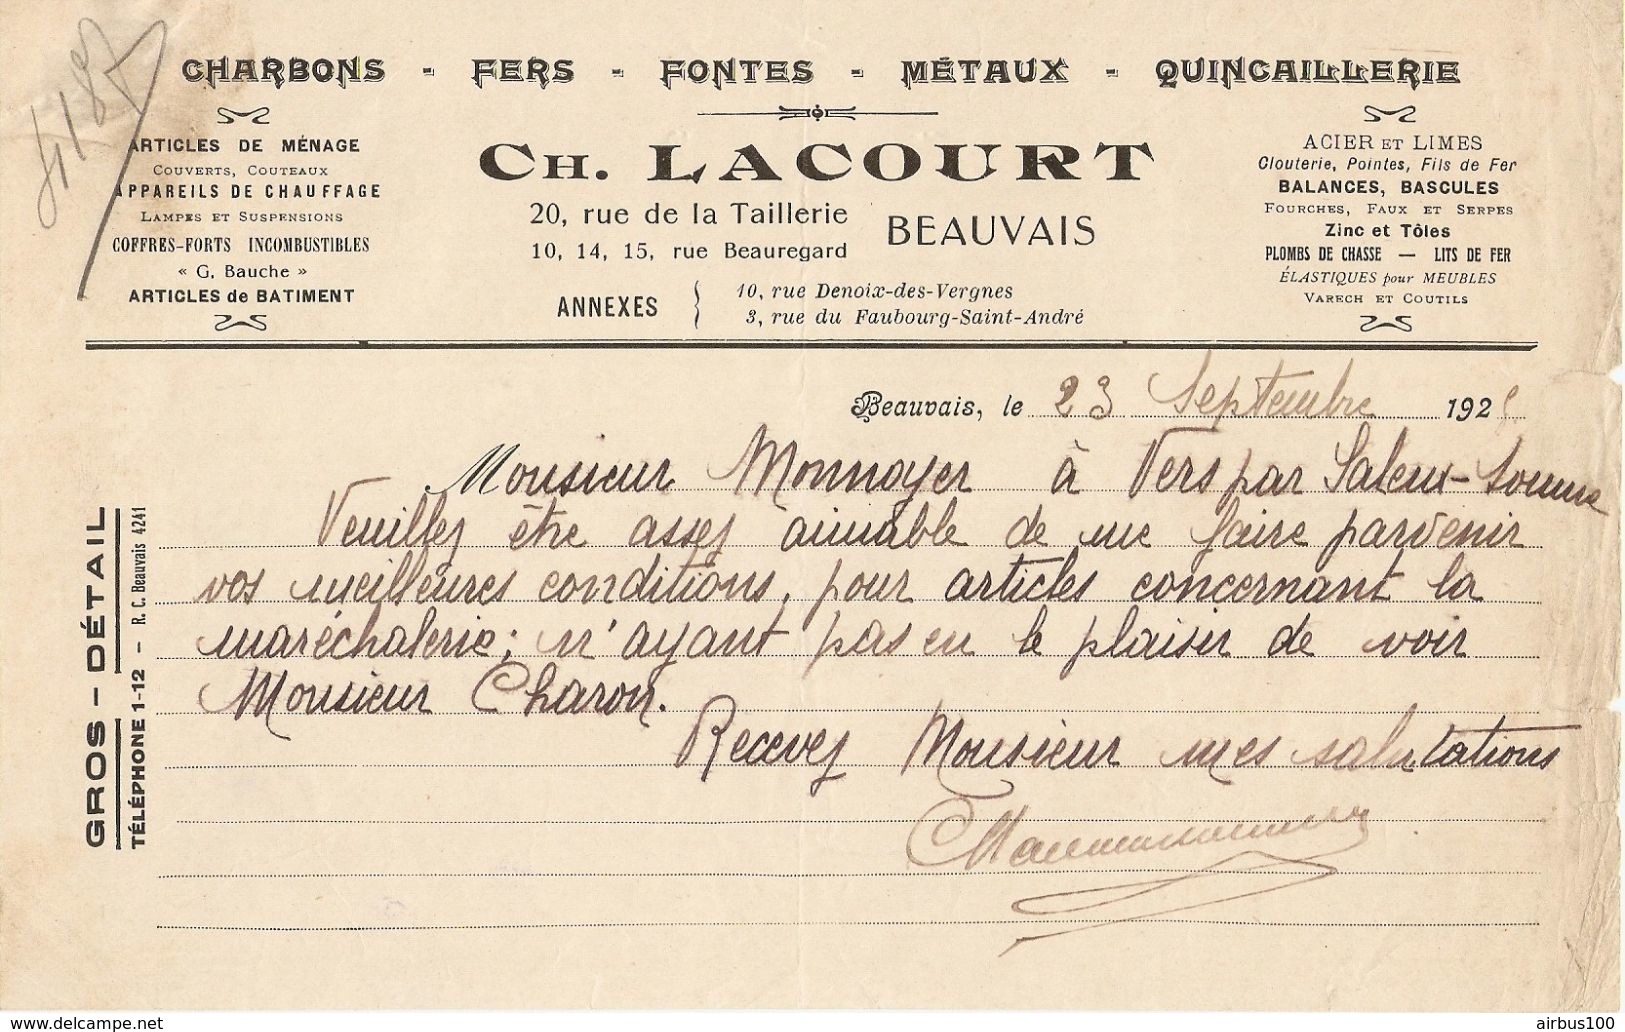 4187
CHARBONS - FERS - FONTES - MÉTAUX - QUINCAILLERIE
ARTICLES DE MÉNAGE
COUVERTS, COUTEAUX
APPAREILS DE CHAUFFAGE
LAMPES ET SUSPENSIONS
COFFRES-FORTS INCOMBUSTIBLES
« G. Bauche »
ARTICLES de BATIMENT
CH. LACOURT
20, rue de la Taillerie
10, 14, 15, rue Beauregard
BEAUVAIS
ANNEXES
10, rue Denoix-des-Vergnes
3, rue du Faubourg-Saint-André
ACIER ET LIMES
Clouterie, Pointes, Fils de Fer
BALANCES, BASCULES
FOURCHES, FAUX ET SERPES
Zinc et Tôles
PLOMBS DE CHASSE — LITS DE FER
ÉLASTIQUES pour MEUBLES
VARECH ET COUTILS
Beauvais, le 23 Septembre 192
Monsieur Monnoyer à Vers par Saleux-Somme
Veuillez être assez aimable de me faire parvenir
vos meilleures conditions, pour articles concernant la
maréchalerie; n'ayant pas eu le plaisir de voir
Monsieur Charon.
Recevez Monsieur mes salutations
GROS - DÉTAIL
TÉLÉPHONE 1-12 - R. C. Beauvais 4241
www.delcampe.net
airbus100